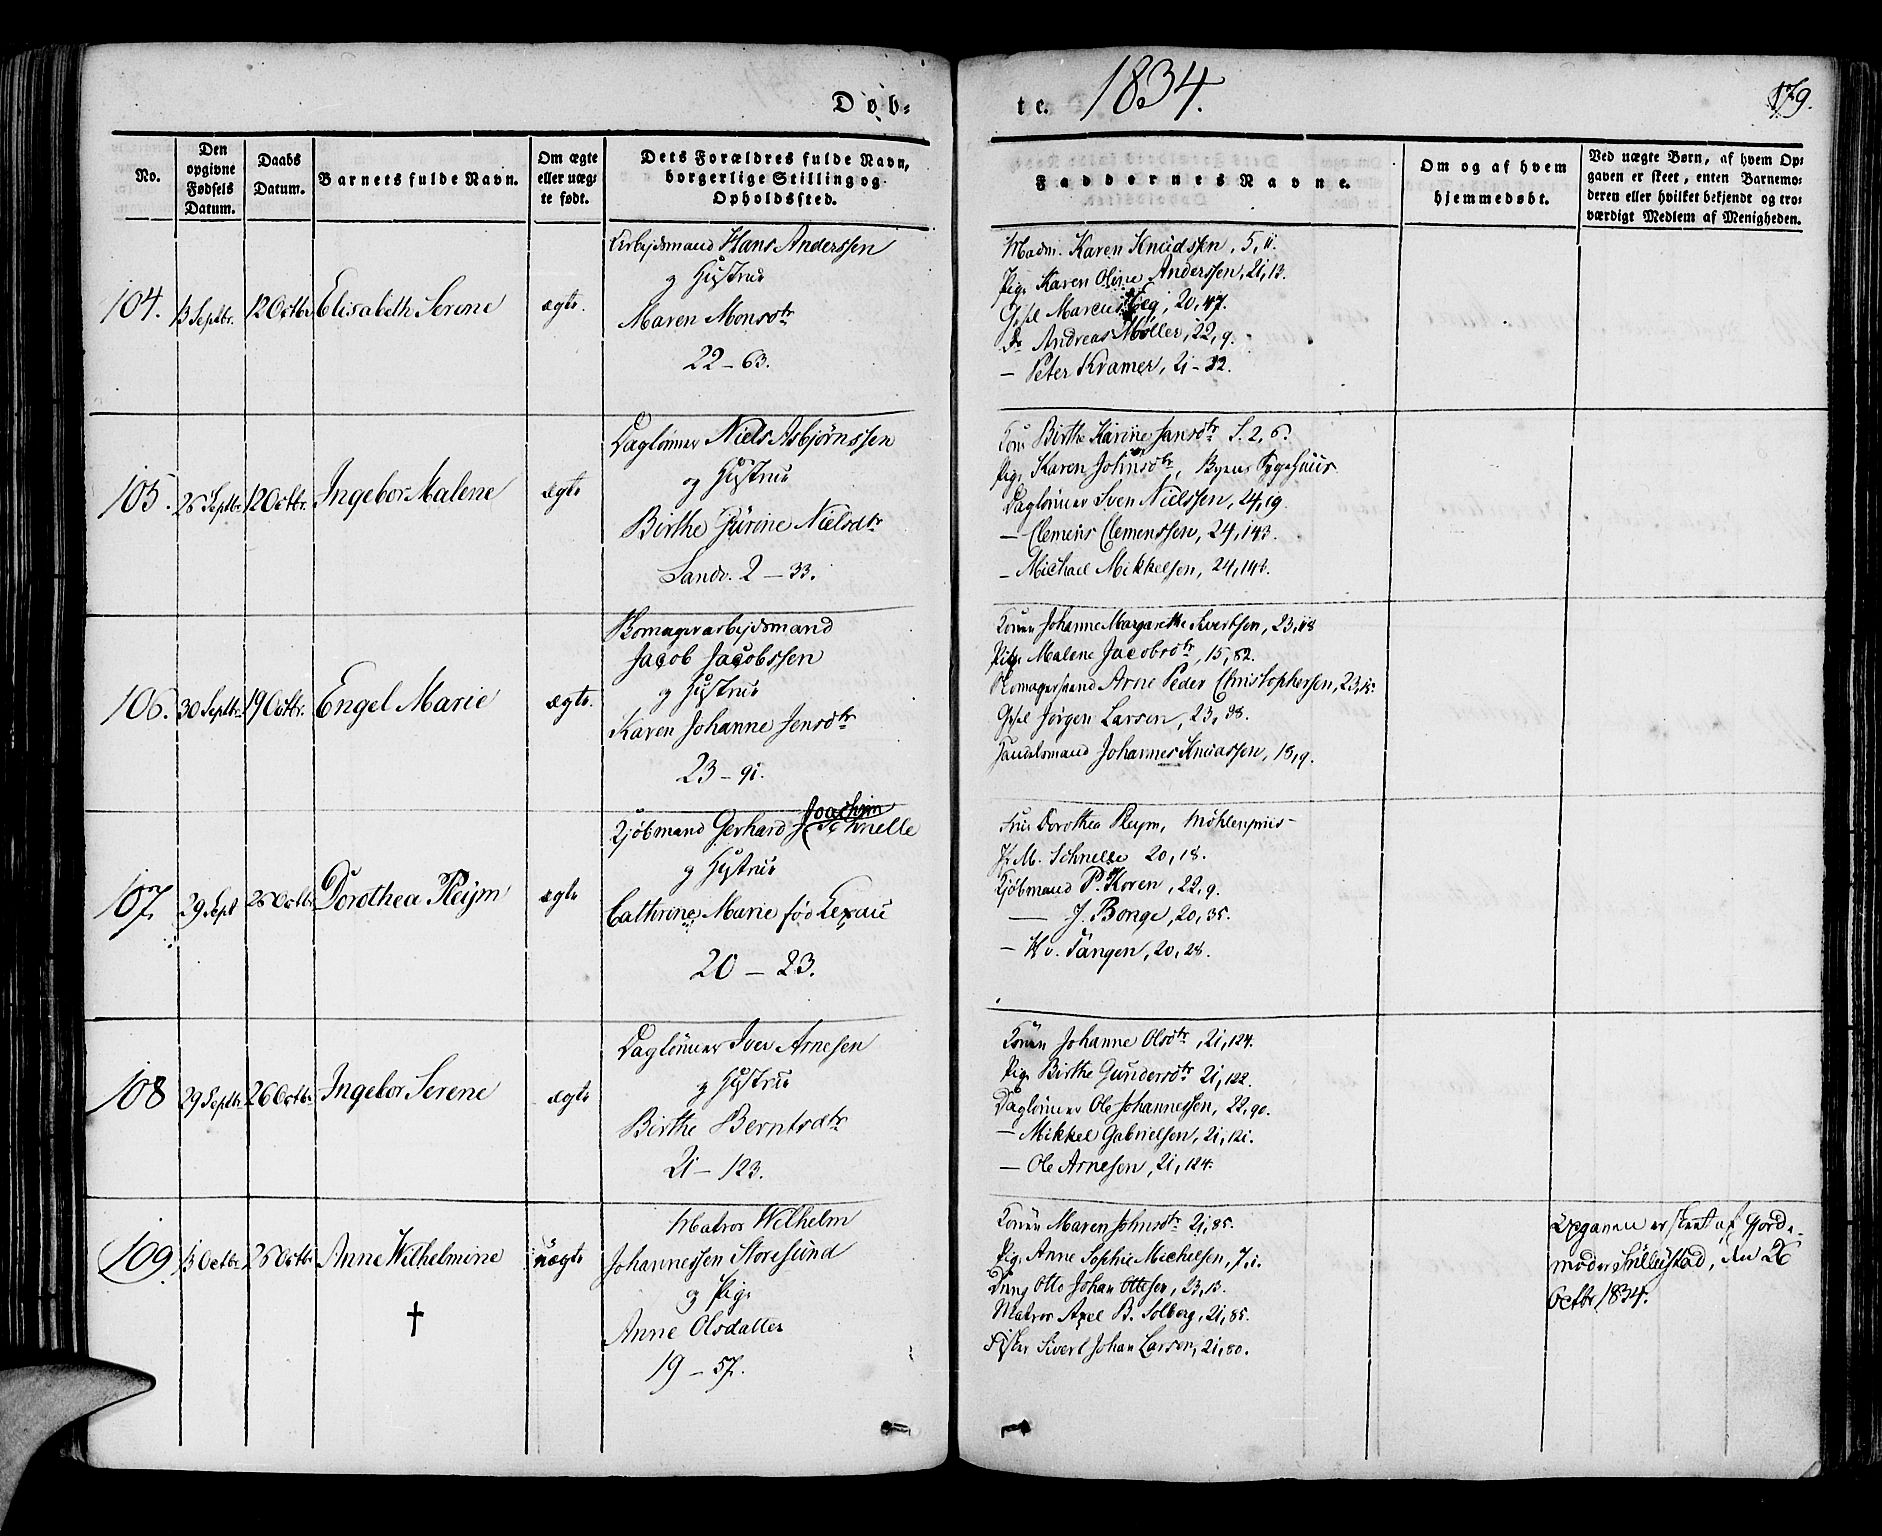 Døb-
te. 1834.
179.
No.
Den opgivne Fødsels Datum.
Daabs Datum.
Barnets fulde Navn.
Om ægte eller uægte født.
Dets Forældres fulde Navn, borgerlige Stilling og Opholdssted.
Faddernes Navne.
Om og af hvem hjemmedøbt.
Ved uægte Børn, af hvem Opgaven er skeet, enten Barnemoderen eller hvilket bekjendt og troværdigt Medlem af Menigheden.
104. 13 Septbr. 12 Octbr. Elisabeth Serene ægte.
Arbejdsmand Hans Anderssen
og Hustrue
Maren Monsdtr
22 – 63.
Madm. Karen Knudssen, 5, 11.
Pige Karen Oline Anderssen, 21, 13.
Gsel Marcus 20, 47.
Do Andreas Møller, 22, 9.
— Peter Kramer, 21 – 32.
105. 26 Septbr. 12 Octbr. Ingebor Malene ægte
Dagløner Niels Asbjørnssen
og Hustrue
Birthe Gurine Nielsdtr
Sandv. 2 – 33.
Kone Birthe Karine Jansdtr S. 2, 6.
Pige Karen Johnsdtr, Byens Sygehuus
Dagløner Sven Nielssen, 24, 19.
— Clemens Clemenssen, 24, 143.
— Michael Mikkelsen, 24, 143.
106. 30 Septbr. 19 Octbr. Engel Marie ægte.
Skomagerarbejdsmand
Jacob Jacobssen
og Hustrue
Karen Johanne Jensdtr
23 – 91.
Konen Johanne Margarethe Sivertsen, 23, 118
Pige Malene Jacobsdtr, 15, 82.
Skomagersvend Arne Peder Christophersen, 23, 15.
Gsel Jørgen Larsen, 23, 38.
Handelsmand Johannes Knudssen, 18, 9.
107. 29 Sept 26 Octbr Dorothea Pleym ægte
Joachim
Kjøbmand Gerhard Schnelle
og Hustrue
Cathrine Marie fød Lexau
20 – 23.
Frue Dorothea Pleym, Møhlenpriis
Jfr M. Schnelle 20, 18.
Kjøbmand P. Koren, 22, 9.
— J. Bonge, 20, 35.
— H v. Tangen, 20, 28.
108 29 Septbr 26 Octbr. Ingebor Serene ægte
Dagløner Iver Arnesen
og Hustrue
Birthe Berntsdtr
21 – 123.
Konen Johanne Olsdtr, 21, 124.
Pige Birthe Gundersdtr 21, 122.
Dagløner Ole Johannessen, 22, 90.
— Mikkel Gabrielsen, 21, 121.
— Ole Arnesen, 21, 124.
109 13 Octbr. 26 Octbr Anne Wilhelmine uægte
†
Matros Wilhelm
Johannessen Storesund
og Pige
Anne Olsdatter
19 – 57.
Konen Maren Johnsdtr 21, 85.
Pige Anne Sophie Michelsen, 7, 1.
Dreng Otto Johan Ottesen, 23, 13.
Matros Axel B. Solberg, 21, 85.
Fisker Sivert Johan Larsen, 21, 80.
Opgaven er skeet af Gjorde-
moder den 26
Octbr. 1834.